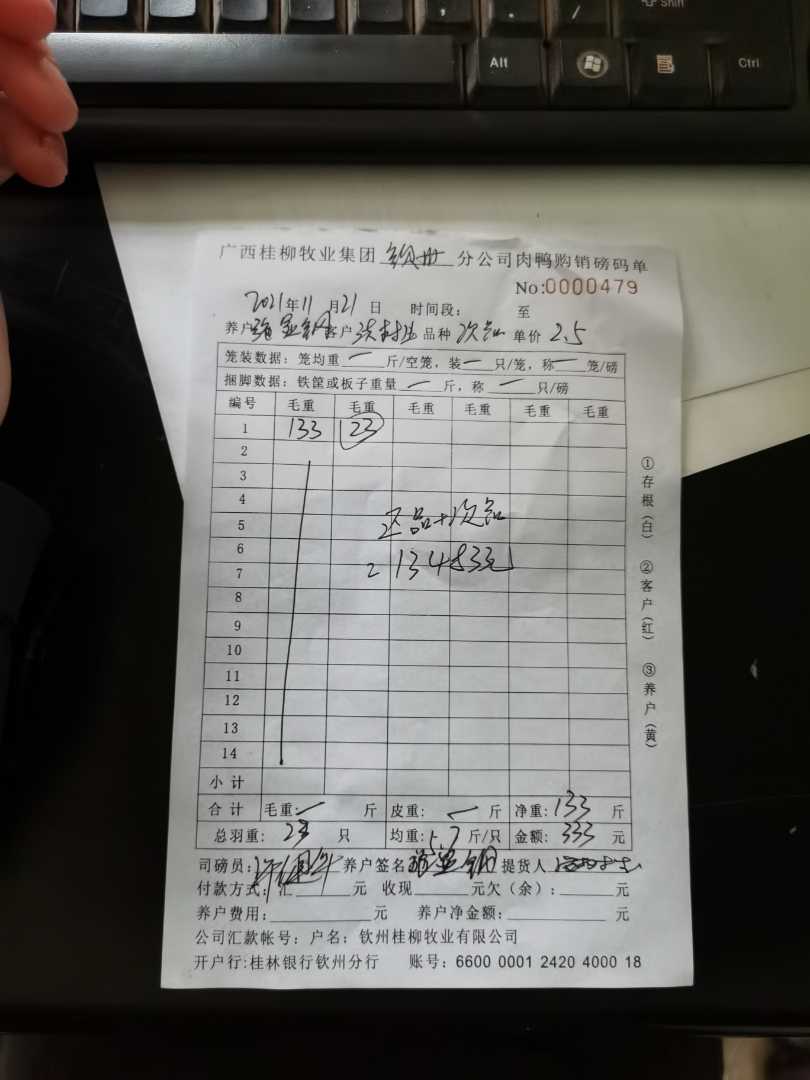 Shift
Alt Ctrl
广西桂柳牧业集团 钦州 分公司肉鸭购销磅码单
No:0000479
2021年11月21日 时间段: 至
养户 客户 品种 次品 单价 2.5
笼装数据:笼均重 一 斤/空笼,装 一 只/笼,称 一 笼/磅
捆脚数据:铁筐或板子重量 一 斤,称 一 只/磅
编号 毛重 毛重 毛重 毛重 毛重 毛重
1 133 23
2
3
4
5 正品+次品
6
7 = 13483元
8
9
10
11
12
13
14
小计
合计 毛重: 一 斤 皮重: 一 斤 净重: 133 斤
总羽重: 23 只 均重: 5.7 斤/只 金额: 333 元
司磅员: 养户签名 提货人
付款方式:汇 元 收现 元欠(余): 元
养户费用: 元 养户净金额: 元
公司汇款帐号:户名:钦州桂柳牧业有限公司
开户行:桂林银行钦州分行 账号:6600 0001 2420 4000 18
①存根(白) ②客户(红) ③养户(黄)